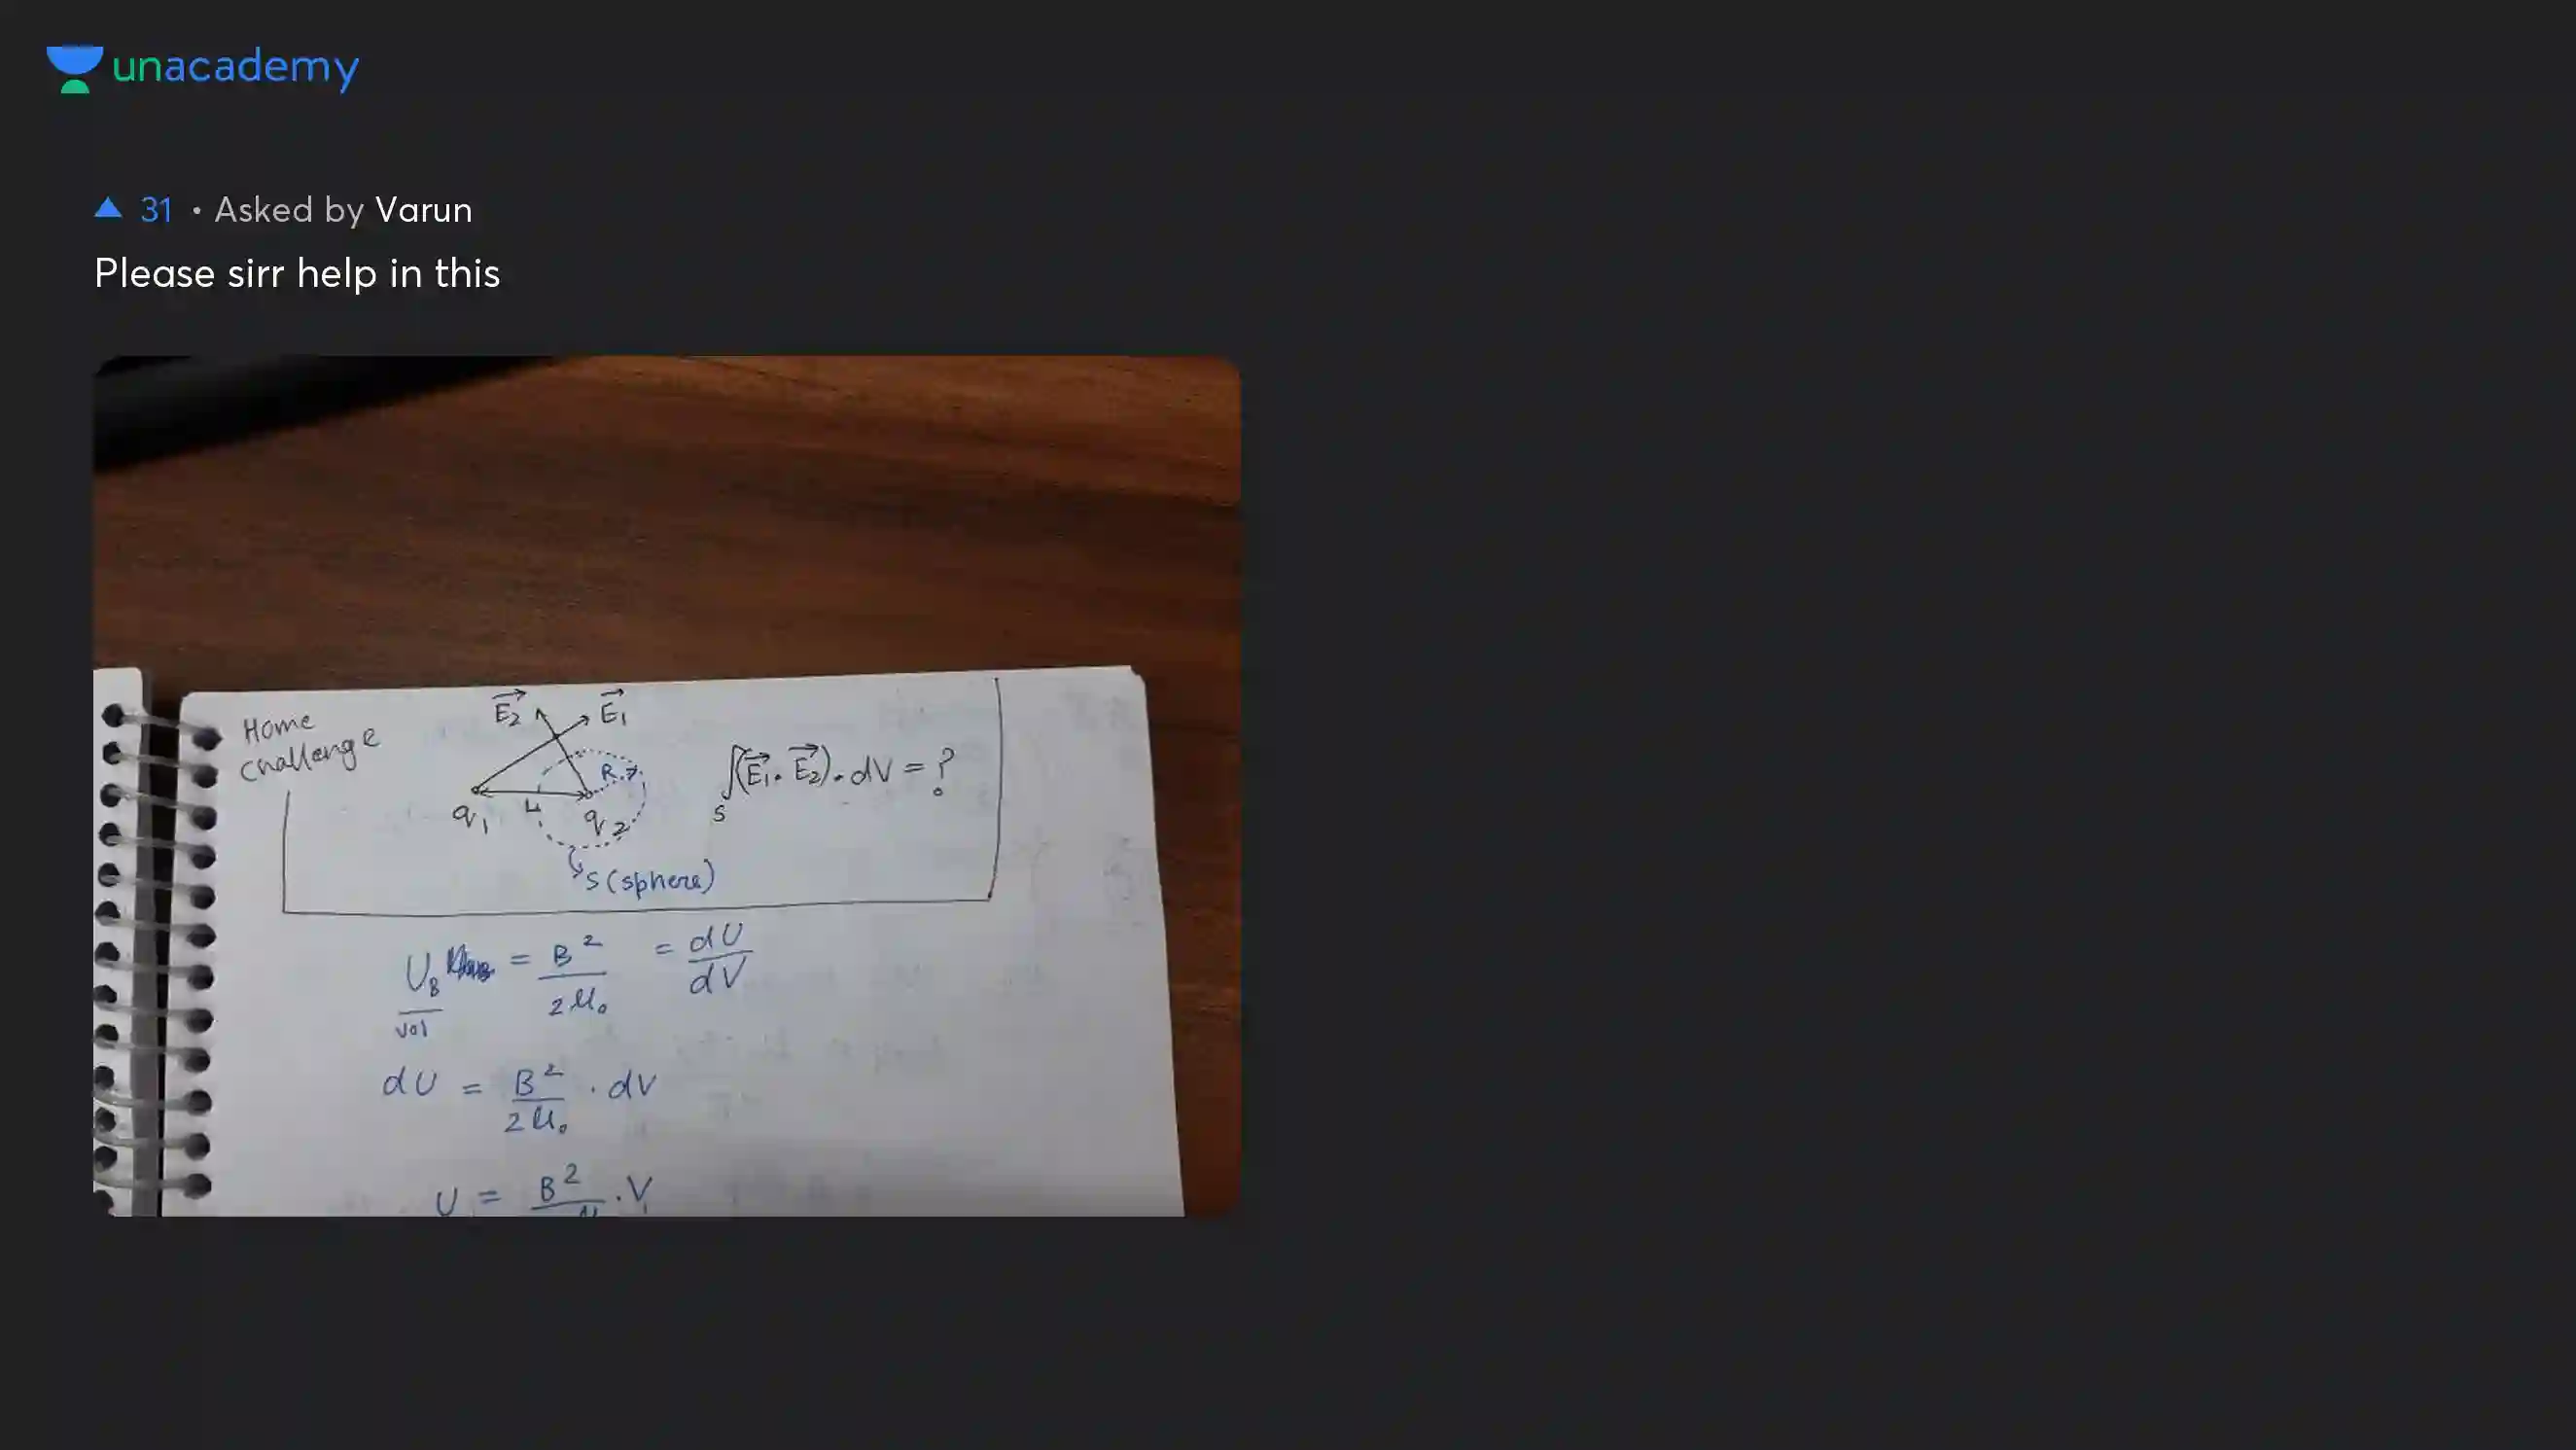 unacademy
31 • Asked by Varun
Please sirr help in this
Home challenge
E₂ E₁
R
q₁ L q₂
S (sphere)
∫(E₁. E₂). dV = ?
S
U_B/vol = B²/2μ₀ = dU/dV
dU = B²/2μ₀ . dV
U = B² . V